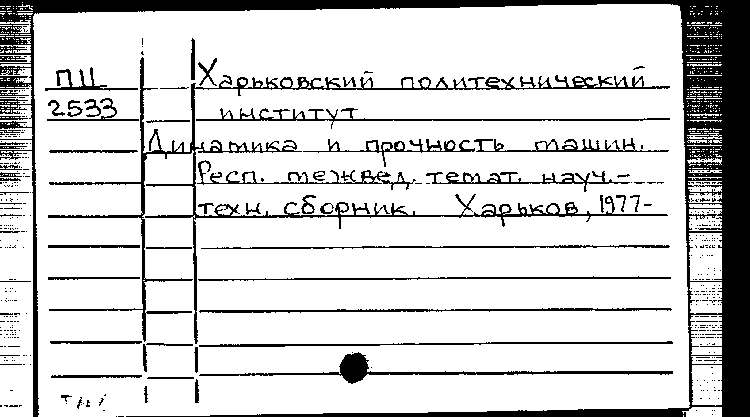 ПЦ Харьковский политехнический
2533 институт
Динамика и прочность машин.
Респ. межвед. темат. науч.-
техн. сборник. Харьков, 1977-